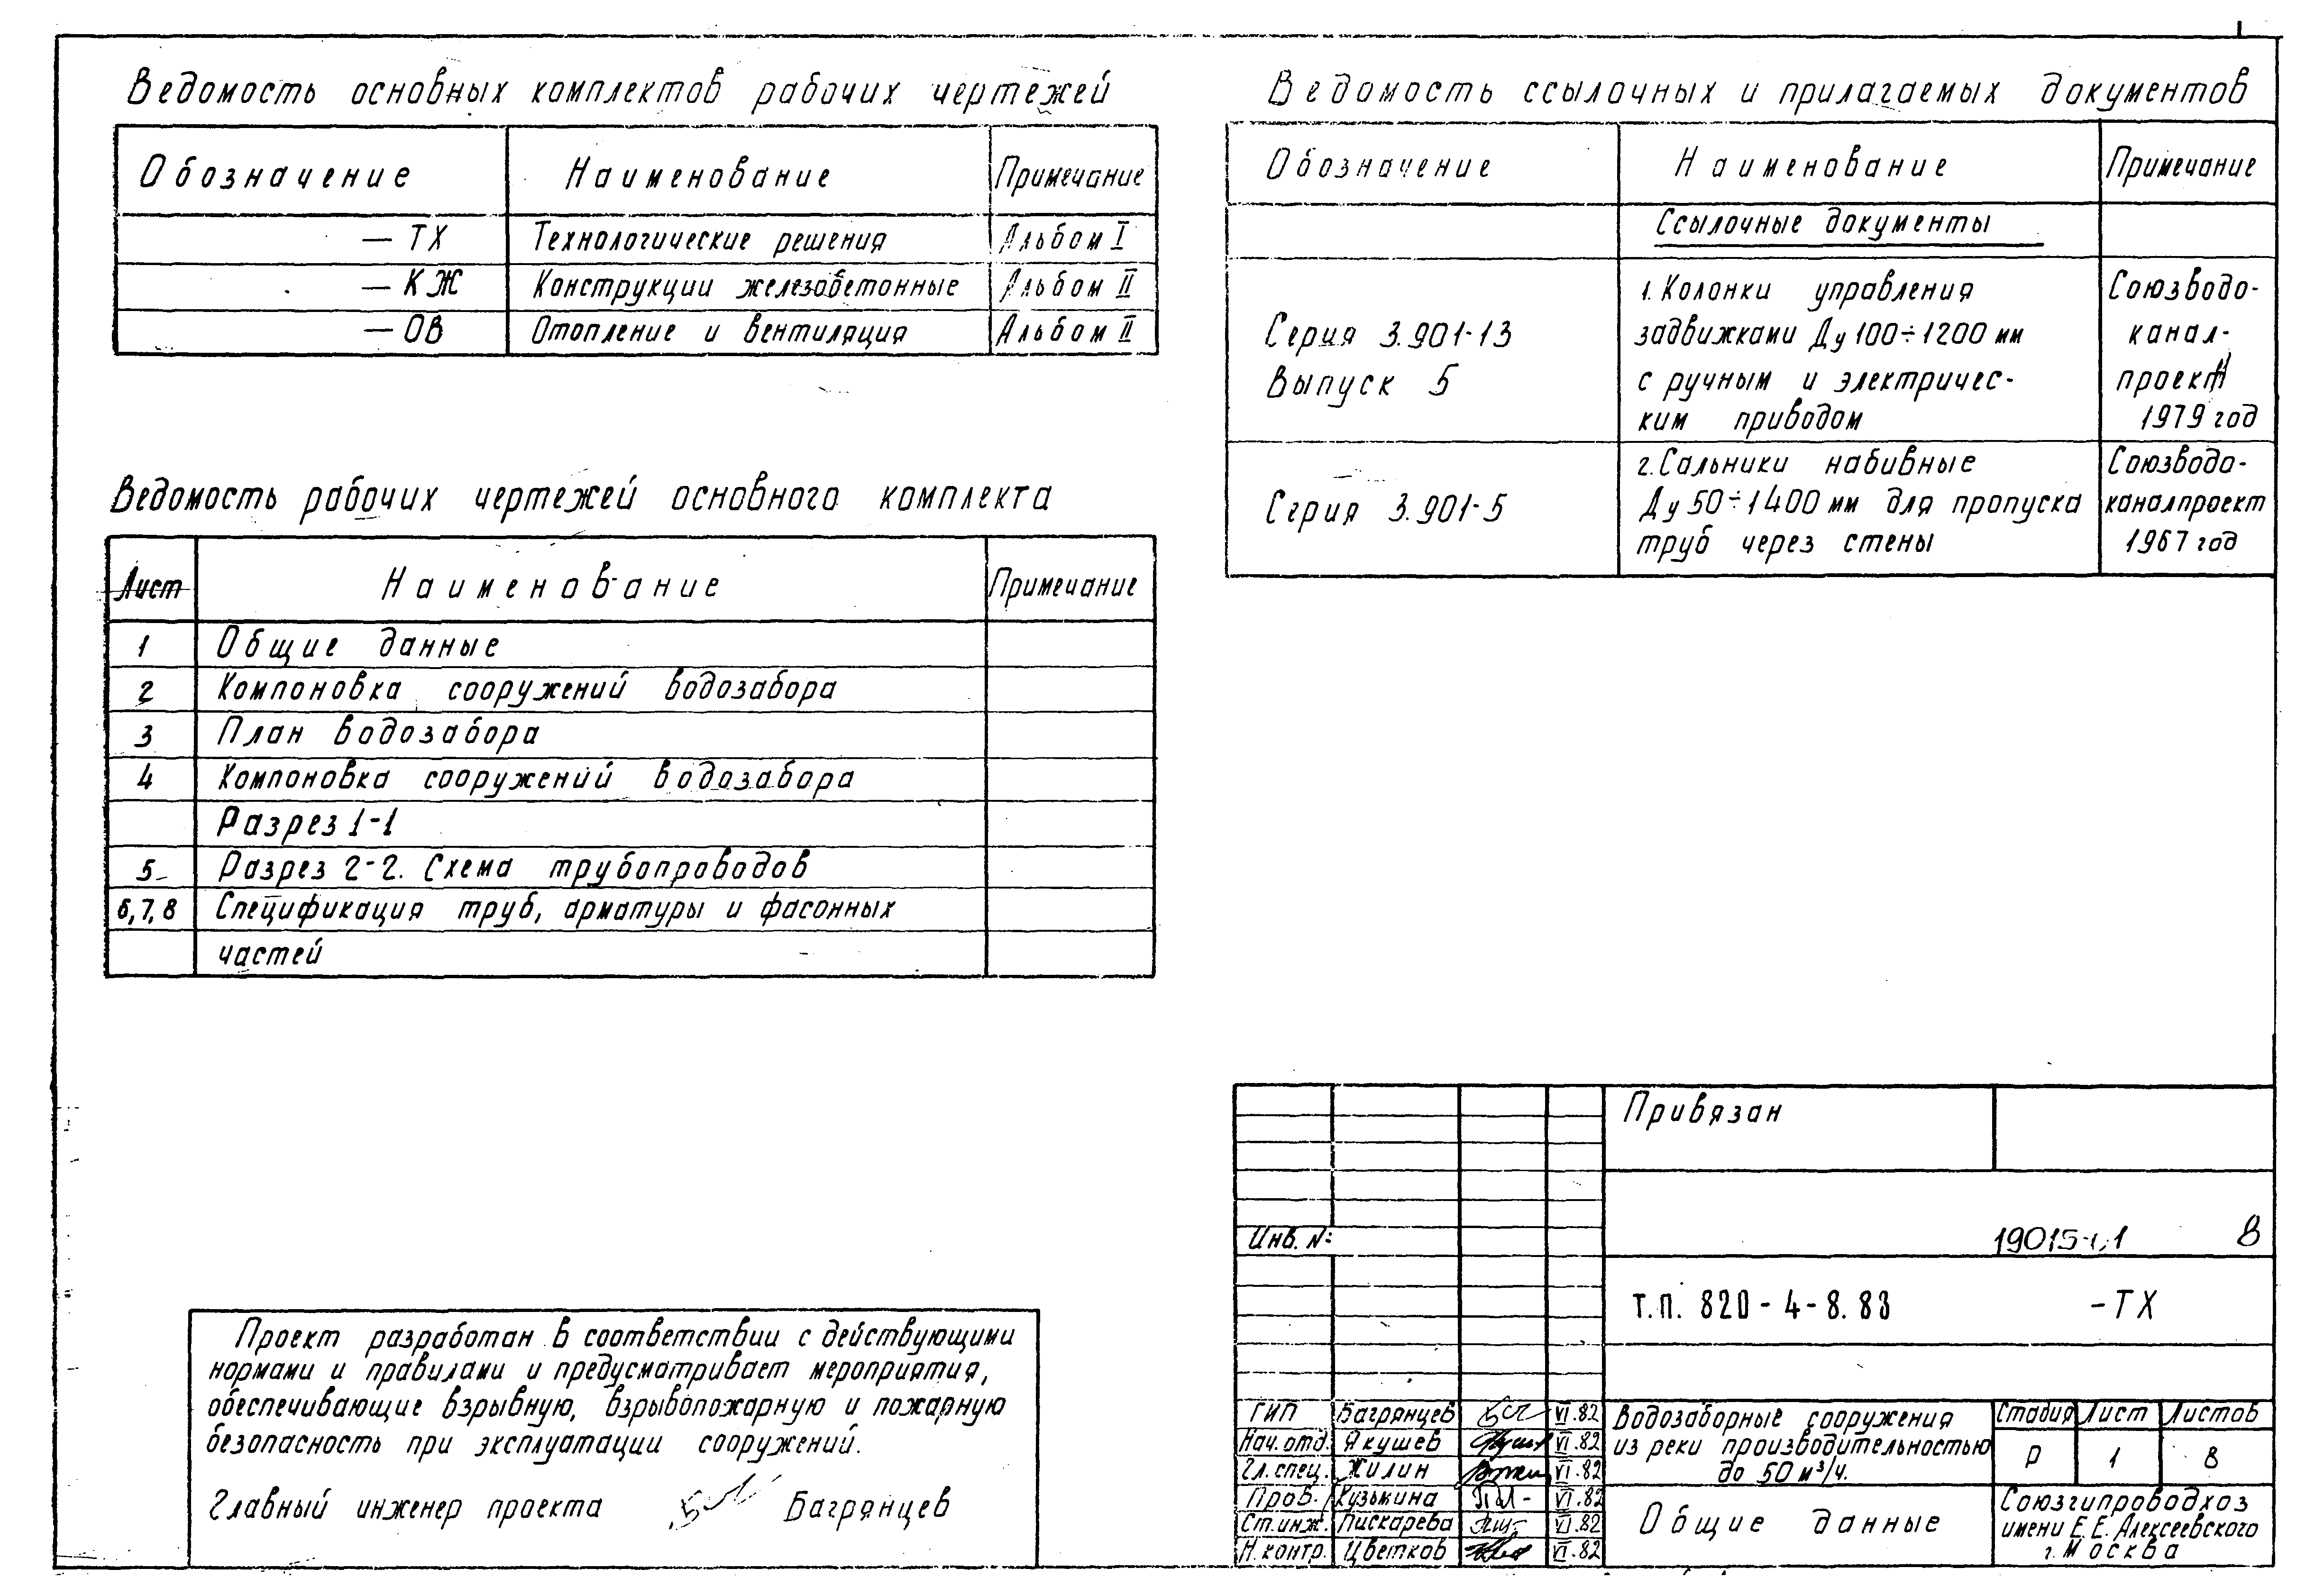 Ведомость основных комплектов рабочих чертежей
Обозначение Наименование Примечание
— ТХ Технологические решения Альбом I
— КЖ Конструкции железобетонные Альбом II
— ОВ Отопление и вентиляция Альбом II
Ведомость рабочих чертежей основного комплекта
Лист Наименование Примечание
1 Общие данные
2 Компоновка сооружений водозабора
3 План водозабора
4 Компоновка сооружений водозабора
Разрез 1-1
5 Разрез 2-2. Схема трубопроводов
6,7,8 Спецификация труб, арматуры и фасонных
частей
Проект разработан в соответствии с действующими
нормами и правилами и предусматривает мероприятия,
обеспечивающие взрывную, взрывопожарную и пожарную
безопасность при эксплуатации сооружений.
Главный инженер проекта Багрянцев
Ведомость ссылочных и прилагаемых документов
Обозначение Наименование Примечание
Ссылочные документы
Серия 3.901-13
Выпуск 5
1. Колонки управления
задвижками Ду 100÷1200 мм
с ручным и электричес-
ким приводом
Союзводо-
канал-
проект
1979 год
Серия 3.901-5
2. Сальники набивные
Ду 50÷1400 мм для пропуска
труб через стены
Союзводо-
каналпроект
1967 год
Привязан
Инв. №
8
т.п. 820-4-8.83 -ТХ
ГИП Багрянцев VI.82
Нач. отд. Якушев VI.82
Гл. спец. Жилин VI.82
Пров. Кузьмина VI.82
Ст. инж. Пискарева VI.82
Н. контр. Цветков VI.82
Водозаборные сооружения
из реки производительностью
до 50 м³/ч.
Стадия Лист Листов
Р 1 8
Общие данные
Союзгипроводхоз
имени Е.Е. Алексеевского
г. Москва